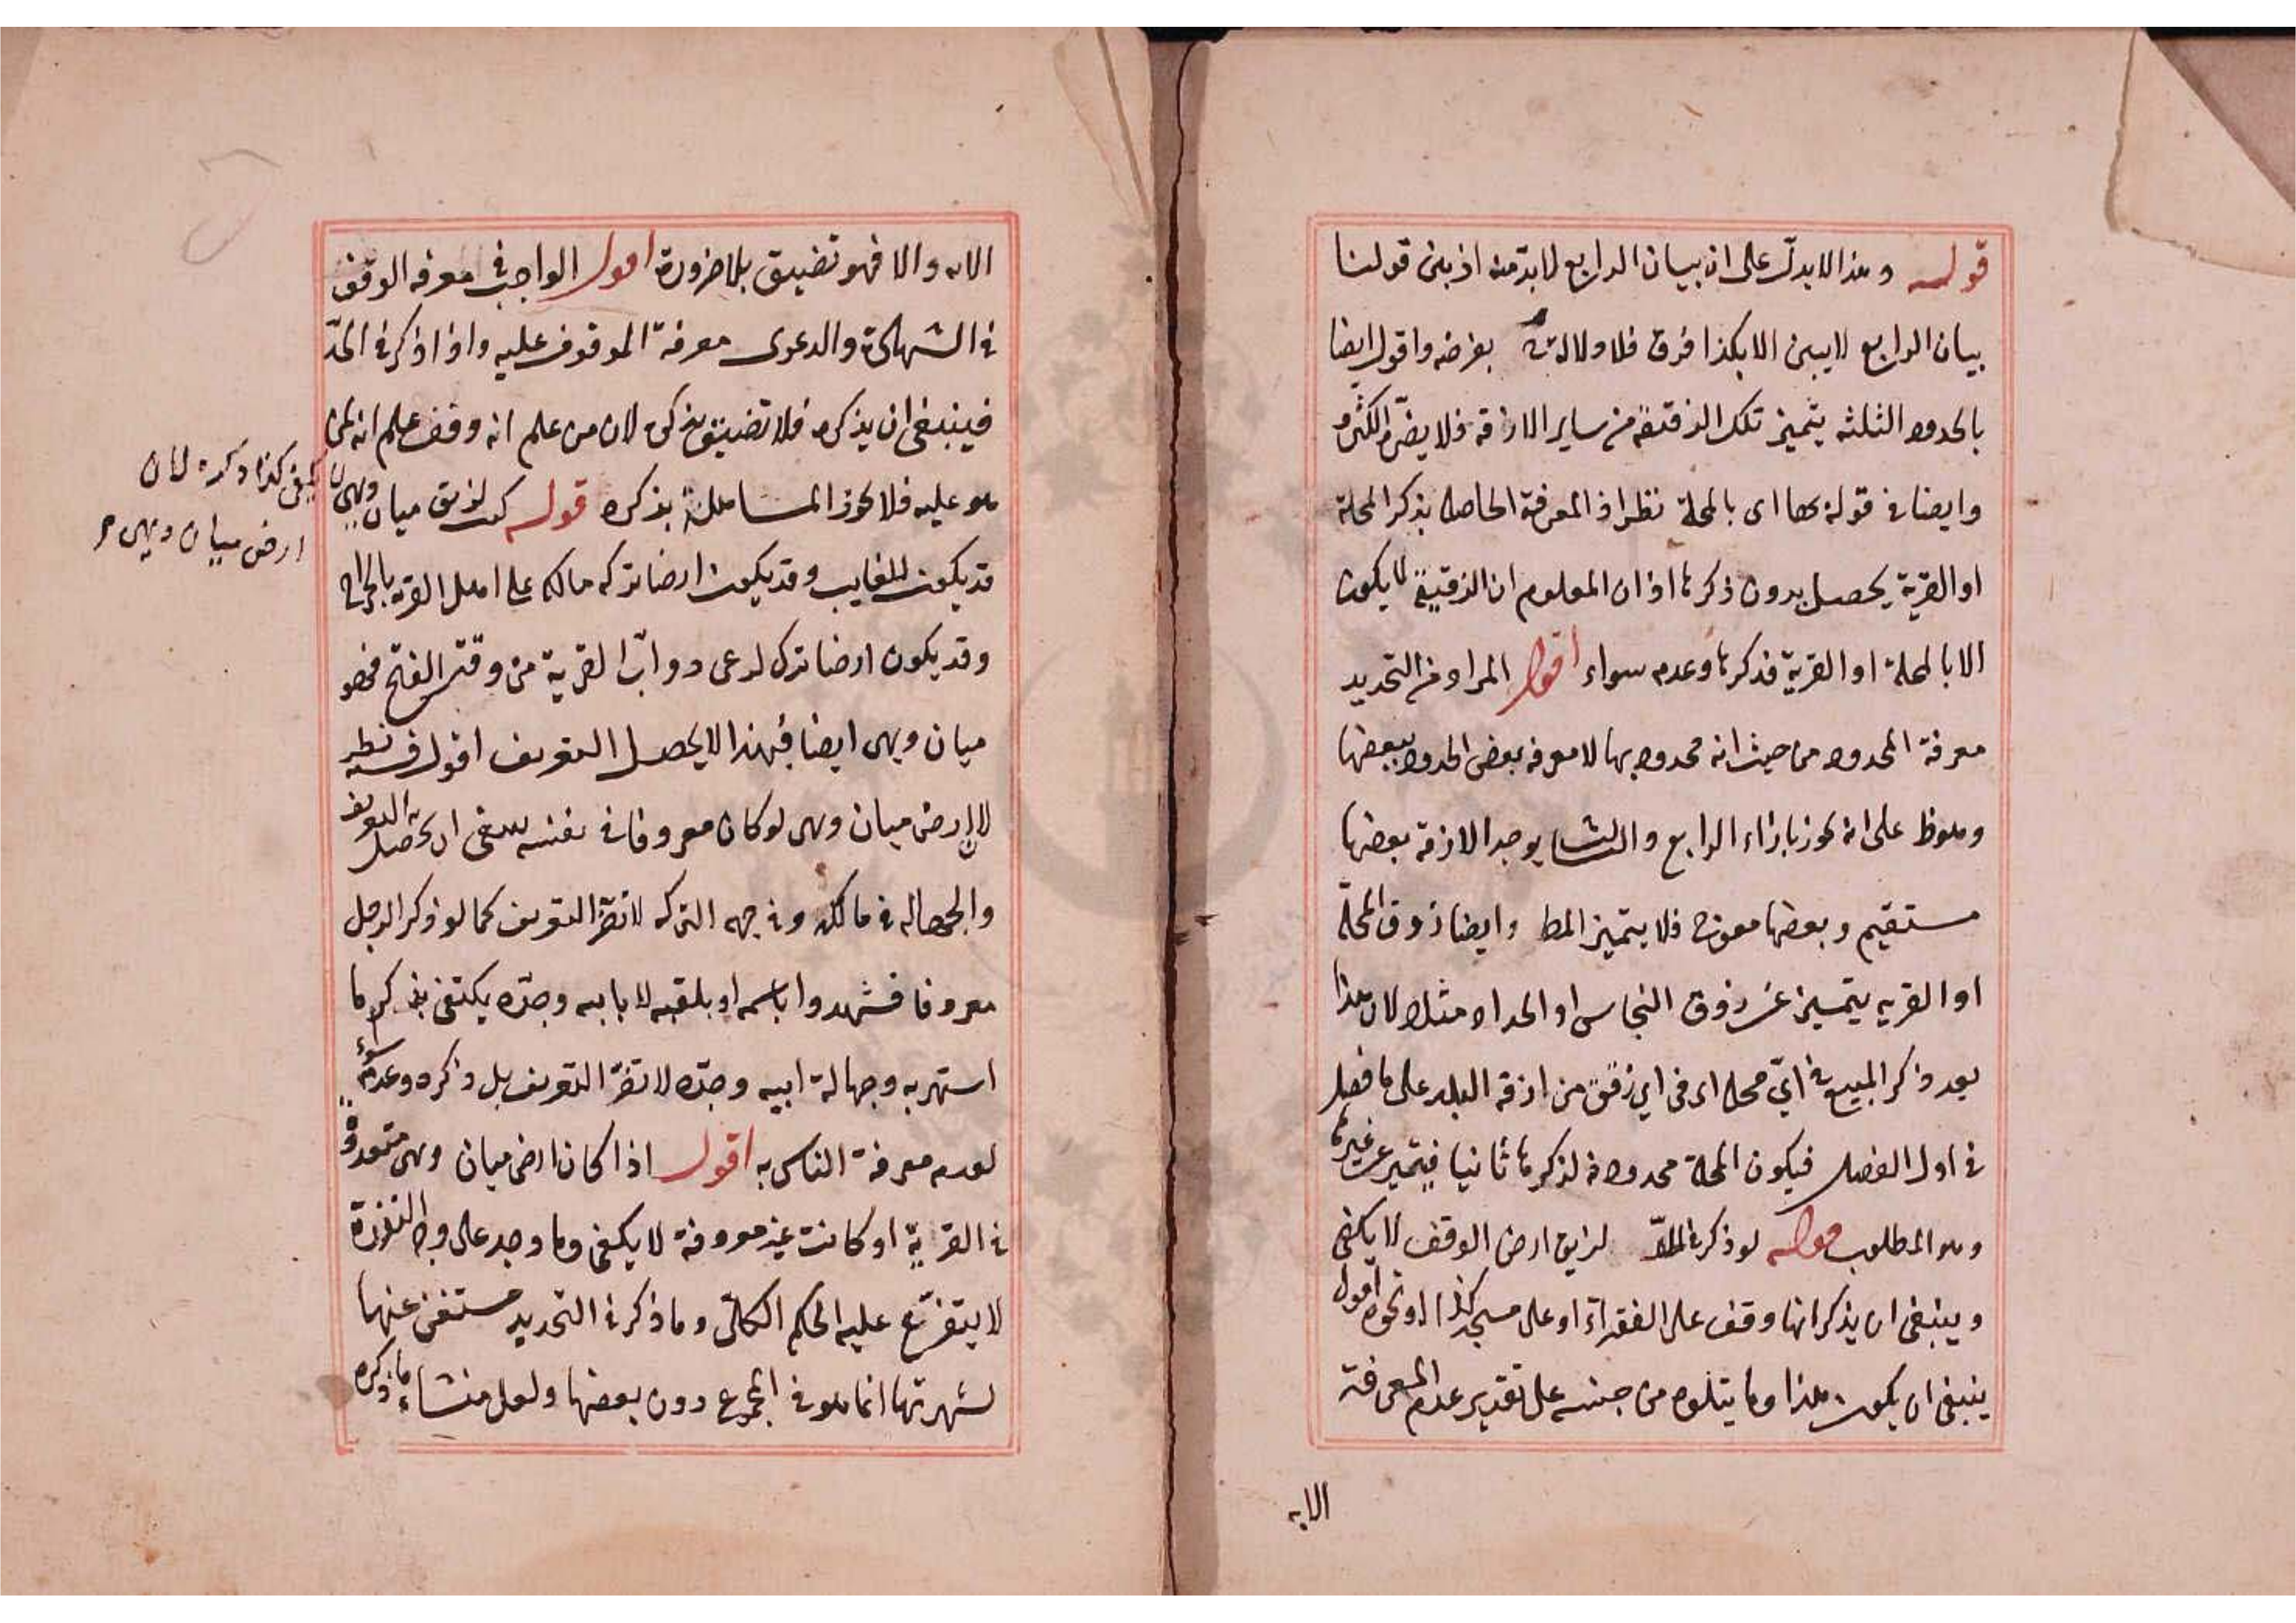 قوله وهذا لا يدل على ان بيان الرابع لا بد منه اذ بين قولنا
بيان الرابع لا يبين الا بكذا فرق فلا دلالة بغرضه واقول ايضا
بالحدود الثلثة يتميز تلك الزقيقة من ساير الازقة فلا يضر
وايضا في قوله بها اى بالمحلة نظر اذ المعرفة الحاصلة بذكر المحلة
او القرية يحصل بدون ذكرها اذ ان المعلوم ان الزقيقة لا يكون
الا بالمحلة او القرية فذكرها وعدمه سواء اقول المراد من التحديد
معرفة المحدود من حيث انه محدود بها لا معرفة بعض الحدود ببعضها
على انه يجوز بازاء الرابع والثالث يوجد الازقة بعضها
مستقيم وبعضها معوج فلا يتميز المط وايضا زوق المحلة
او القرية يتميز عن زوق النجاس او الحداد مثلا لان هذا
بعد ذكر المبيع في اي محلة اى في اي زقيقة من ازقة البلد على ما فصل
في اول الفصل فيكون المحلة محدودة لذكرها ثانيا فيتميز عن غيرها
وهو المطلوب قوله لو ذكر في الحد لزيق ارض الوقف لا يكفى
وينبغى ان يذكر انها وقف على الفقراء او على مسجد كذا او نحوه اقول
ينبغى ان يكون هذا وما يتلوه من جنسه على تقدير عدم المعرفة
الا به
الا به والا فهو تضييق بلا ضرورة اقول الواجب في معرفة الوقف
في الشهادة والدعوى معرفة الموقوف عليه واذا ذكر في الحد
فينبغى ان يذكره فلا تضييق بذكره لان من علم انه وقف علم انه لمن
هو عليه فلا يجوز المساهلة بذكره قوله كتب لزيق ميان ديهى
قد يكون للغايب وقد يكون ارضا تركه مالكه على اهل القرية بالخراج
وقد يكون ارضا ترك لرعى دواب القرية من وقت الفتح فهو
ميان ديهى ايضا فبهذا لا يحصل التعريف اقول فيه نظر
لان ارض ميان ديهى لو كان معروفا في نفسه ينبغى ان يحصل به التعريف
والجهالة في مالكه وفي جهة التركة لا تضر التعريف كما لو ذكر الرجل
معروفا فشهدوا باسمه او بلقبه لا بابيه وجده يكتفى بذكر ما
اشتهر به وجهالة ابيه وجده لا تضر التعريف بل ذكره وعدمه سواء
لعدم معرفة الناس به اقول اذا كان ارض ميان ديهى متعددة
في القرية او كانت غير معروفة لا يكفى وما وجد على وجه الندرة
لا يتفرع عليه الحكم الكلى وما ذكر في التحديد مستغن عنها
لشهرتها انما هو في المجموع دون بعضها ولعل منشاء ما ذكره
كذا ذكره لان
ارض ميان ديهى